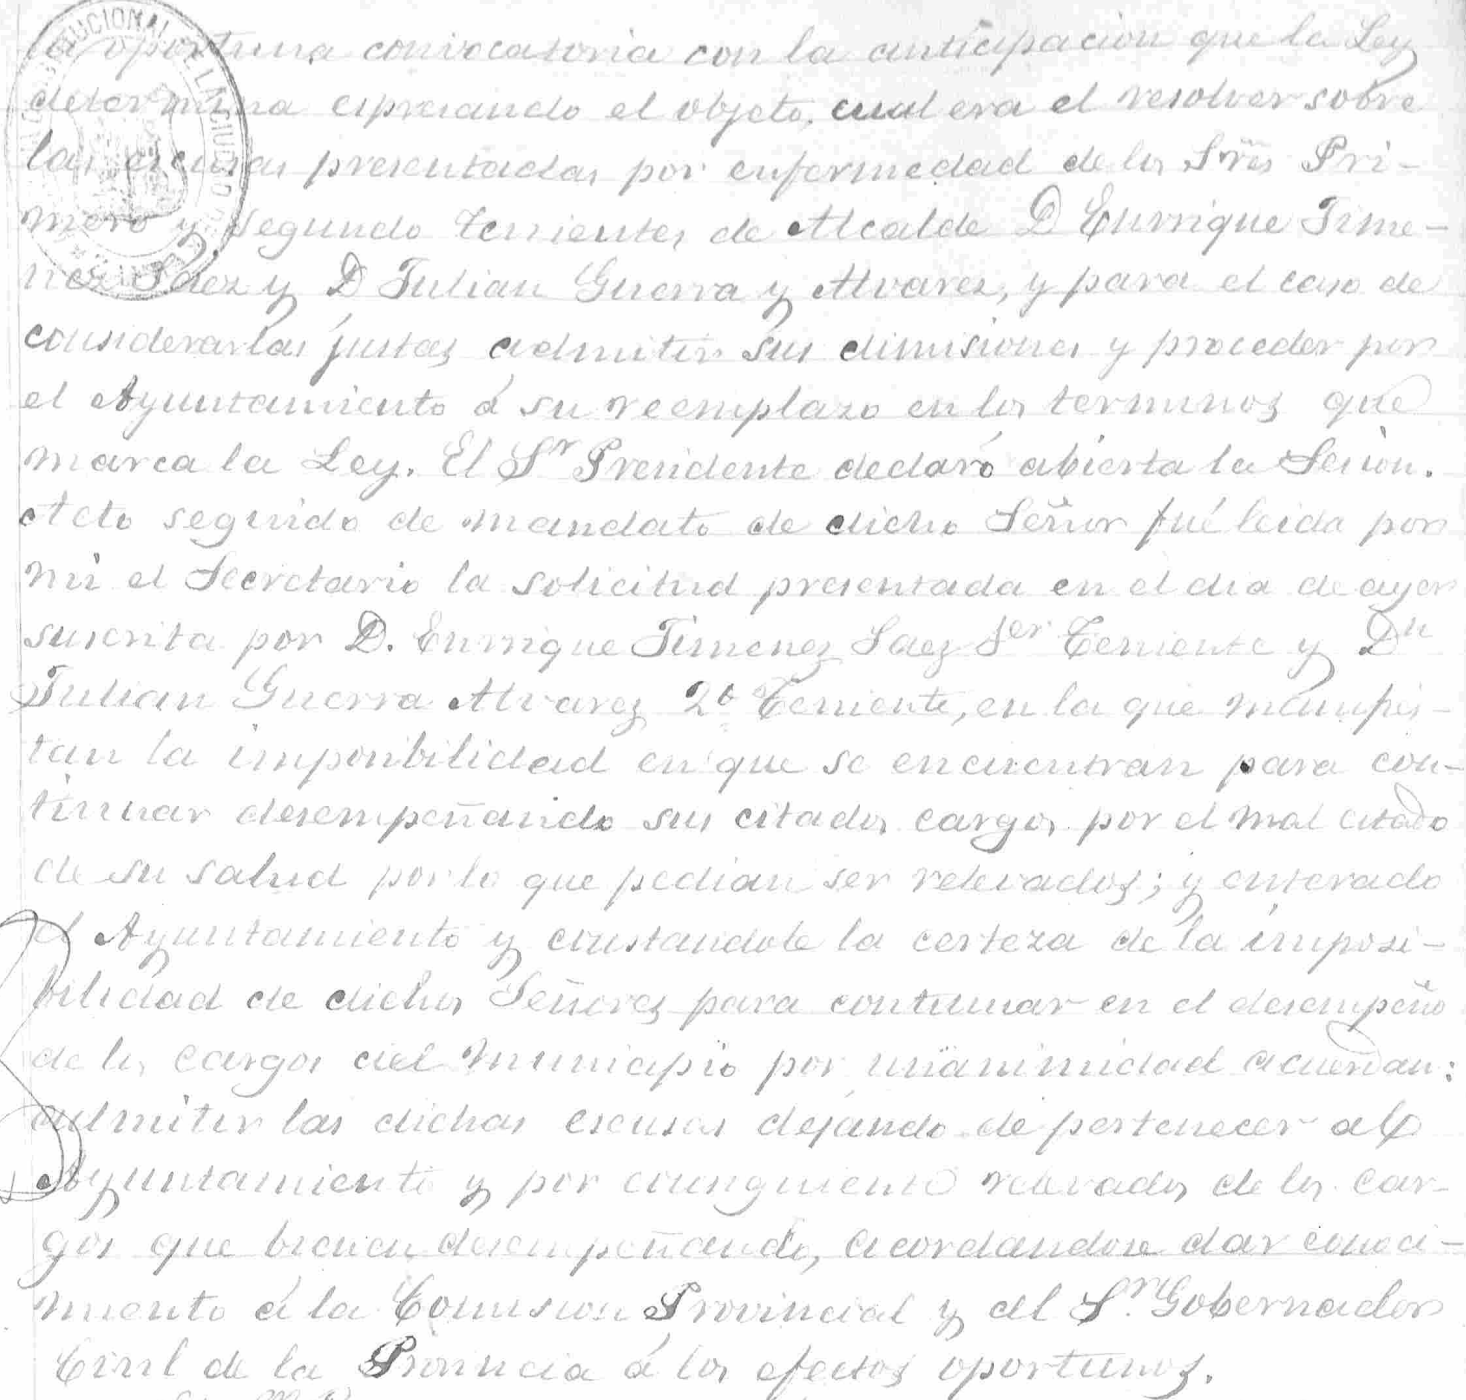 la oportuna convocatoria con la anticipacion que la Ley
determina espresando el objeto, cual era el resolver sobre
las escusas presentadas por enfermedad de los Sres Pri-
mero y Segundo Tenientes de Alcalde D Enrrique Jime-
nez Saez y D Julian Guerra y Alvarez, y para el caso de
considerarlas justas admitir sus dimisiones y proceder por
el Ayuntamiento á su reemplazo en los terminos que
marca la Ley. El Sr Presidente declaró abierta la Sesion.
Acto seguido de mandato de dicho Señor fué leida por
mi el Secretario la solicitud presentada en el dia de ayer
suscrita por D. Enrrique Jimenez Saez 1er Teniente y Dn
Julian Guerra Alvarez 2º Teniente, en la que manifies-
tan la imposibilidad en que se encuentran para con-
tinuar desempeñando sus citados cargos por el mal estado
de su salud por lo que pedian ser relevados; y enterado
el Ayuntamiento y constandole la certeza de la imposi-
bilidad de dichos Señores para continuar en el desempeño
de los cargos del Municipio por unanimidad acuerdan:
admitir las dichas escusas dejando de pertenecer al
Ayuntamiento y por consiguiente relevados de los car-
gos que bienen desempeñando, acordandose dar conoci-
miento á la Comision Provincial y al Sr. Gobernador
Civil de la Provincia á los efectos oportunos.